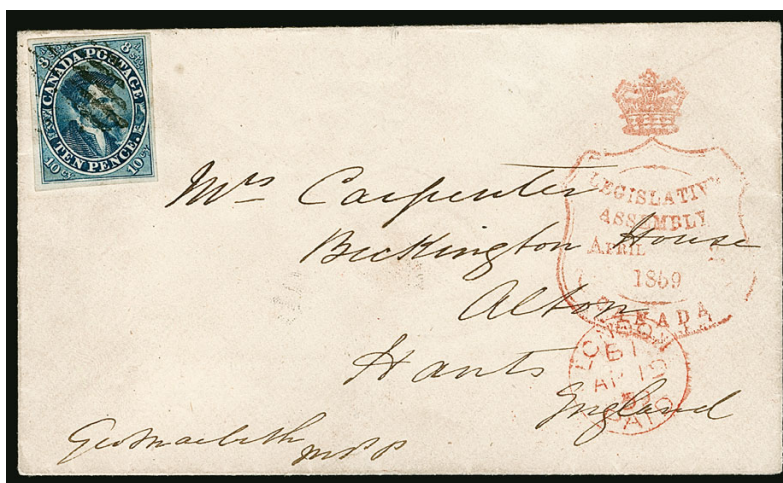 8 d stg CANADA POSTAGE 8 d stg
10 cy TEN PENCE 10 cy
LEGISLATIVE
ASSEMBLY
APRIL
1859
CANADA
Mrs Carpenter
Bickington House
Alton
Hants
England
LONDON
AP 19
59
PAID
Geo Macbeth
MPP